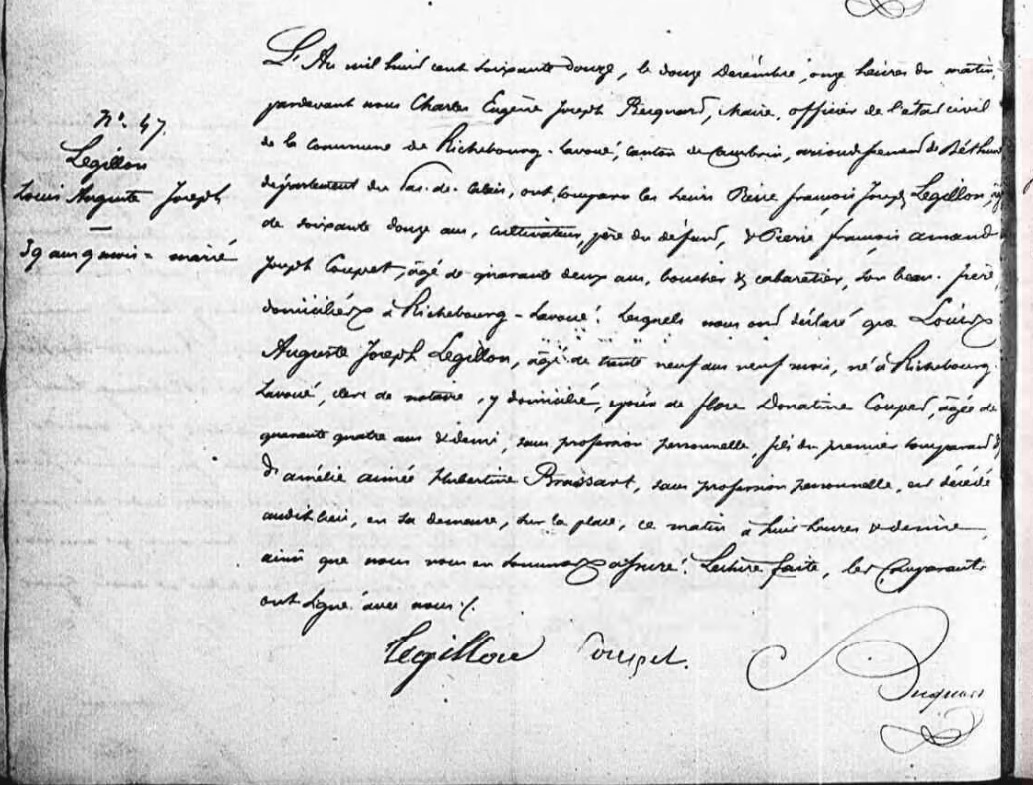 N°. 47
Legillon
Louis Auguste Joseph
39 ans 9 mois = marié
L'An mil huit cent soixante douze, le douze Décembre, onze heures du matin,
pardevant nous Charles Eugène Joseph, Maire, officier de l'état civil
de la commune de Richebourg-Lavoué, canton de Cambrin, arrondissement de Béthune
département du Pas-de-Calais, ont comparu les sieurs Pierre François Joseph Legillon, âgé
de soixante douze ans, cultivateur, père du défunt, & Pierre françois amand
Joseph Coupet, âgé de quarante deux ans, boucher & cabaretier, son beau-frère,
domiciliés à Richebourg-Lavoué. Lesquels nous ont déclaré que Louis
Auguste Joseph Legillon, âgé de trente neuf ans neuf mois, né à Richebourg-
Lavoué, clerc de notaire, y domicilié, époux de flore Donatine Coupet, âgée de
quarante quatre ans & demi, sans profession personnelle, fils du premier comparant &
d'amélie aimée Hubertine Brassart, sans profession personnelle, est décédé
audit lieu, en sa demeure, sur la place, ce matin à huit heures & demie
ainsi que nous nous en sommes assuré. Lecture faite, les comparants
ont signé avec nous ./.
Legillon Coupet.